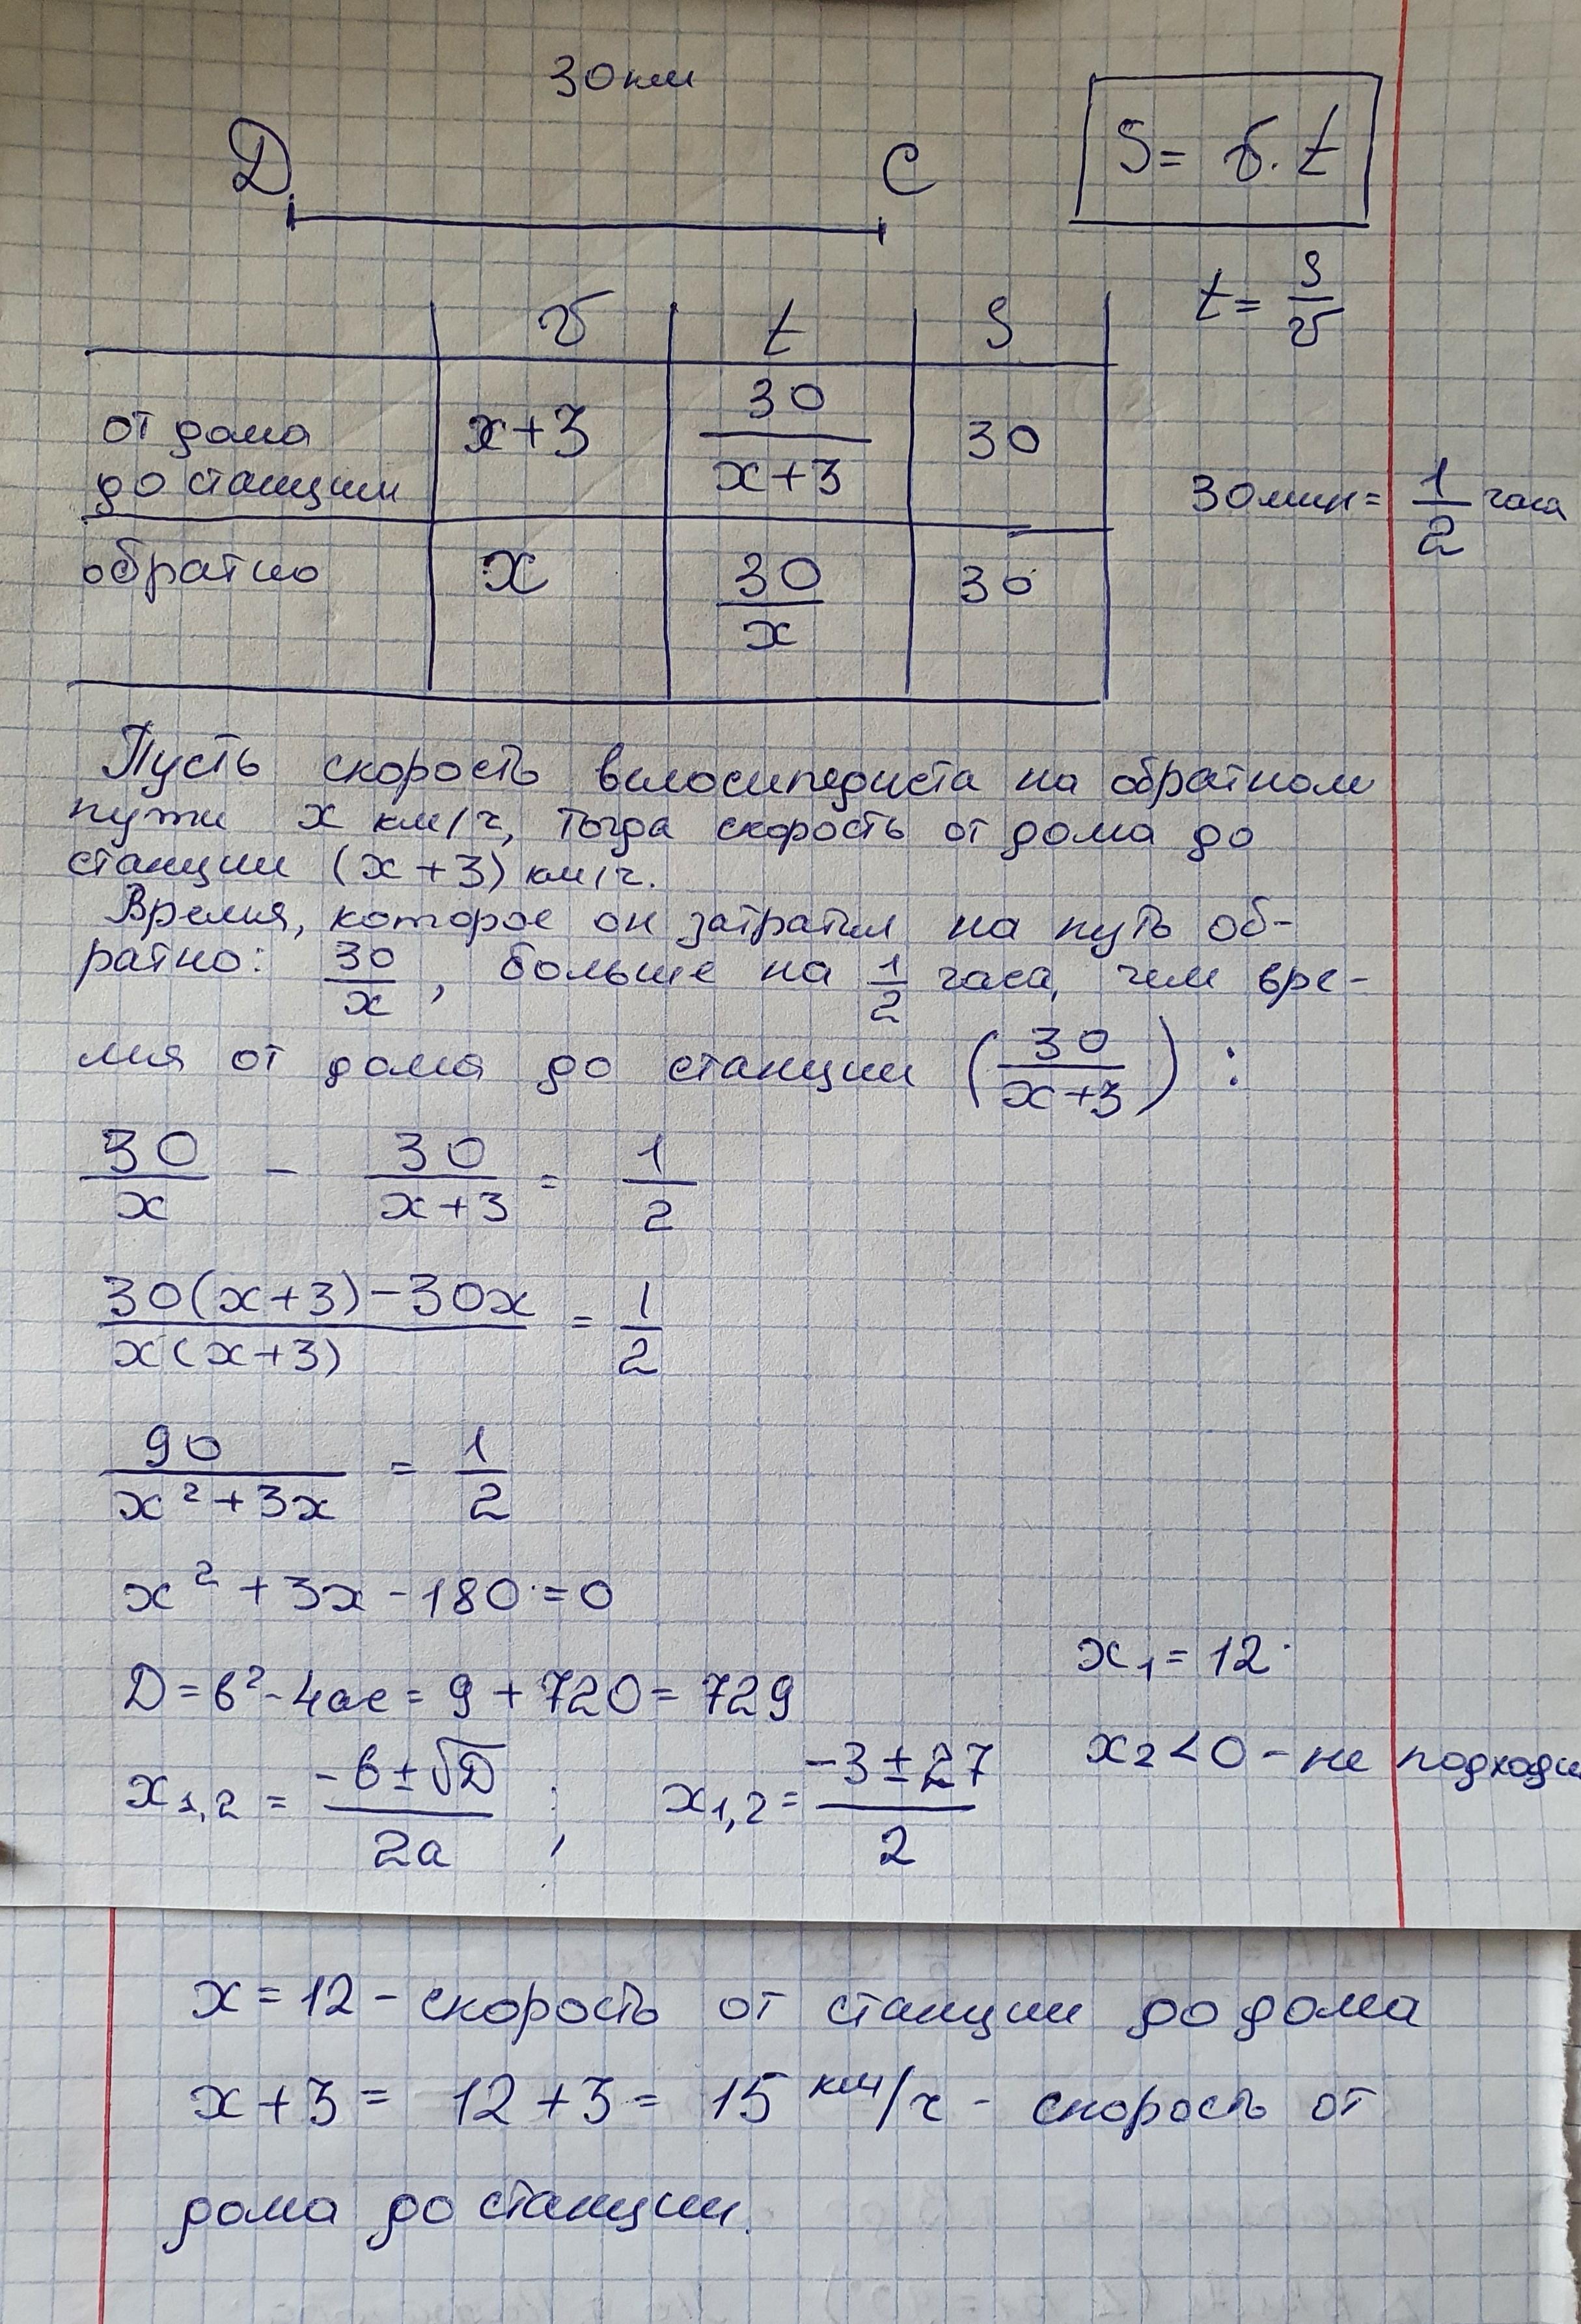 30км
Д С
S = v·t
t = S/v
v t S
от дома до станции x+3 30/(x+3) 30
30мин = 1/2 часа
обратно x 30/x 30
Пусть скорость велосипедиста на обратном
пути x км/ч, тогда скорость от дома до
станции (x+3) км/ч.
Время, которое он затратил на путь об-
ратно: 30/x, больше на 1/2 часа, чем вре-
мя от дома до станции (30/(x+3)):
30/x - 30/(x+3) = 1/2
(30(x+3)-30x)/(x(x+3)) = 1/2
90/(x²+3x) = 1/2
x²+3x-180=0
D=b²-4ac=9+720=729
x₁=12
x₁,₂ = (-b±√D)/2a ; x₁,₂ = (-3±27)/2
x₂<0 - не подходи
x=12 - скорость от станции до дома
x+3 = 12+3 = 15 км/ч - скорость от
дома до станции.